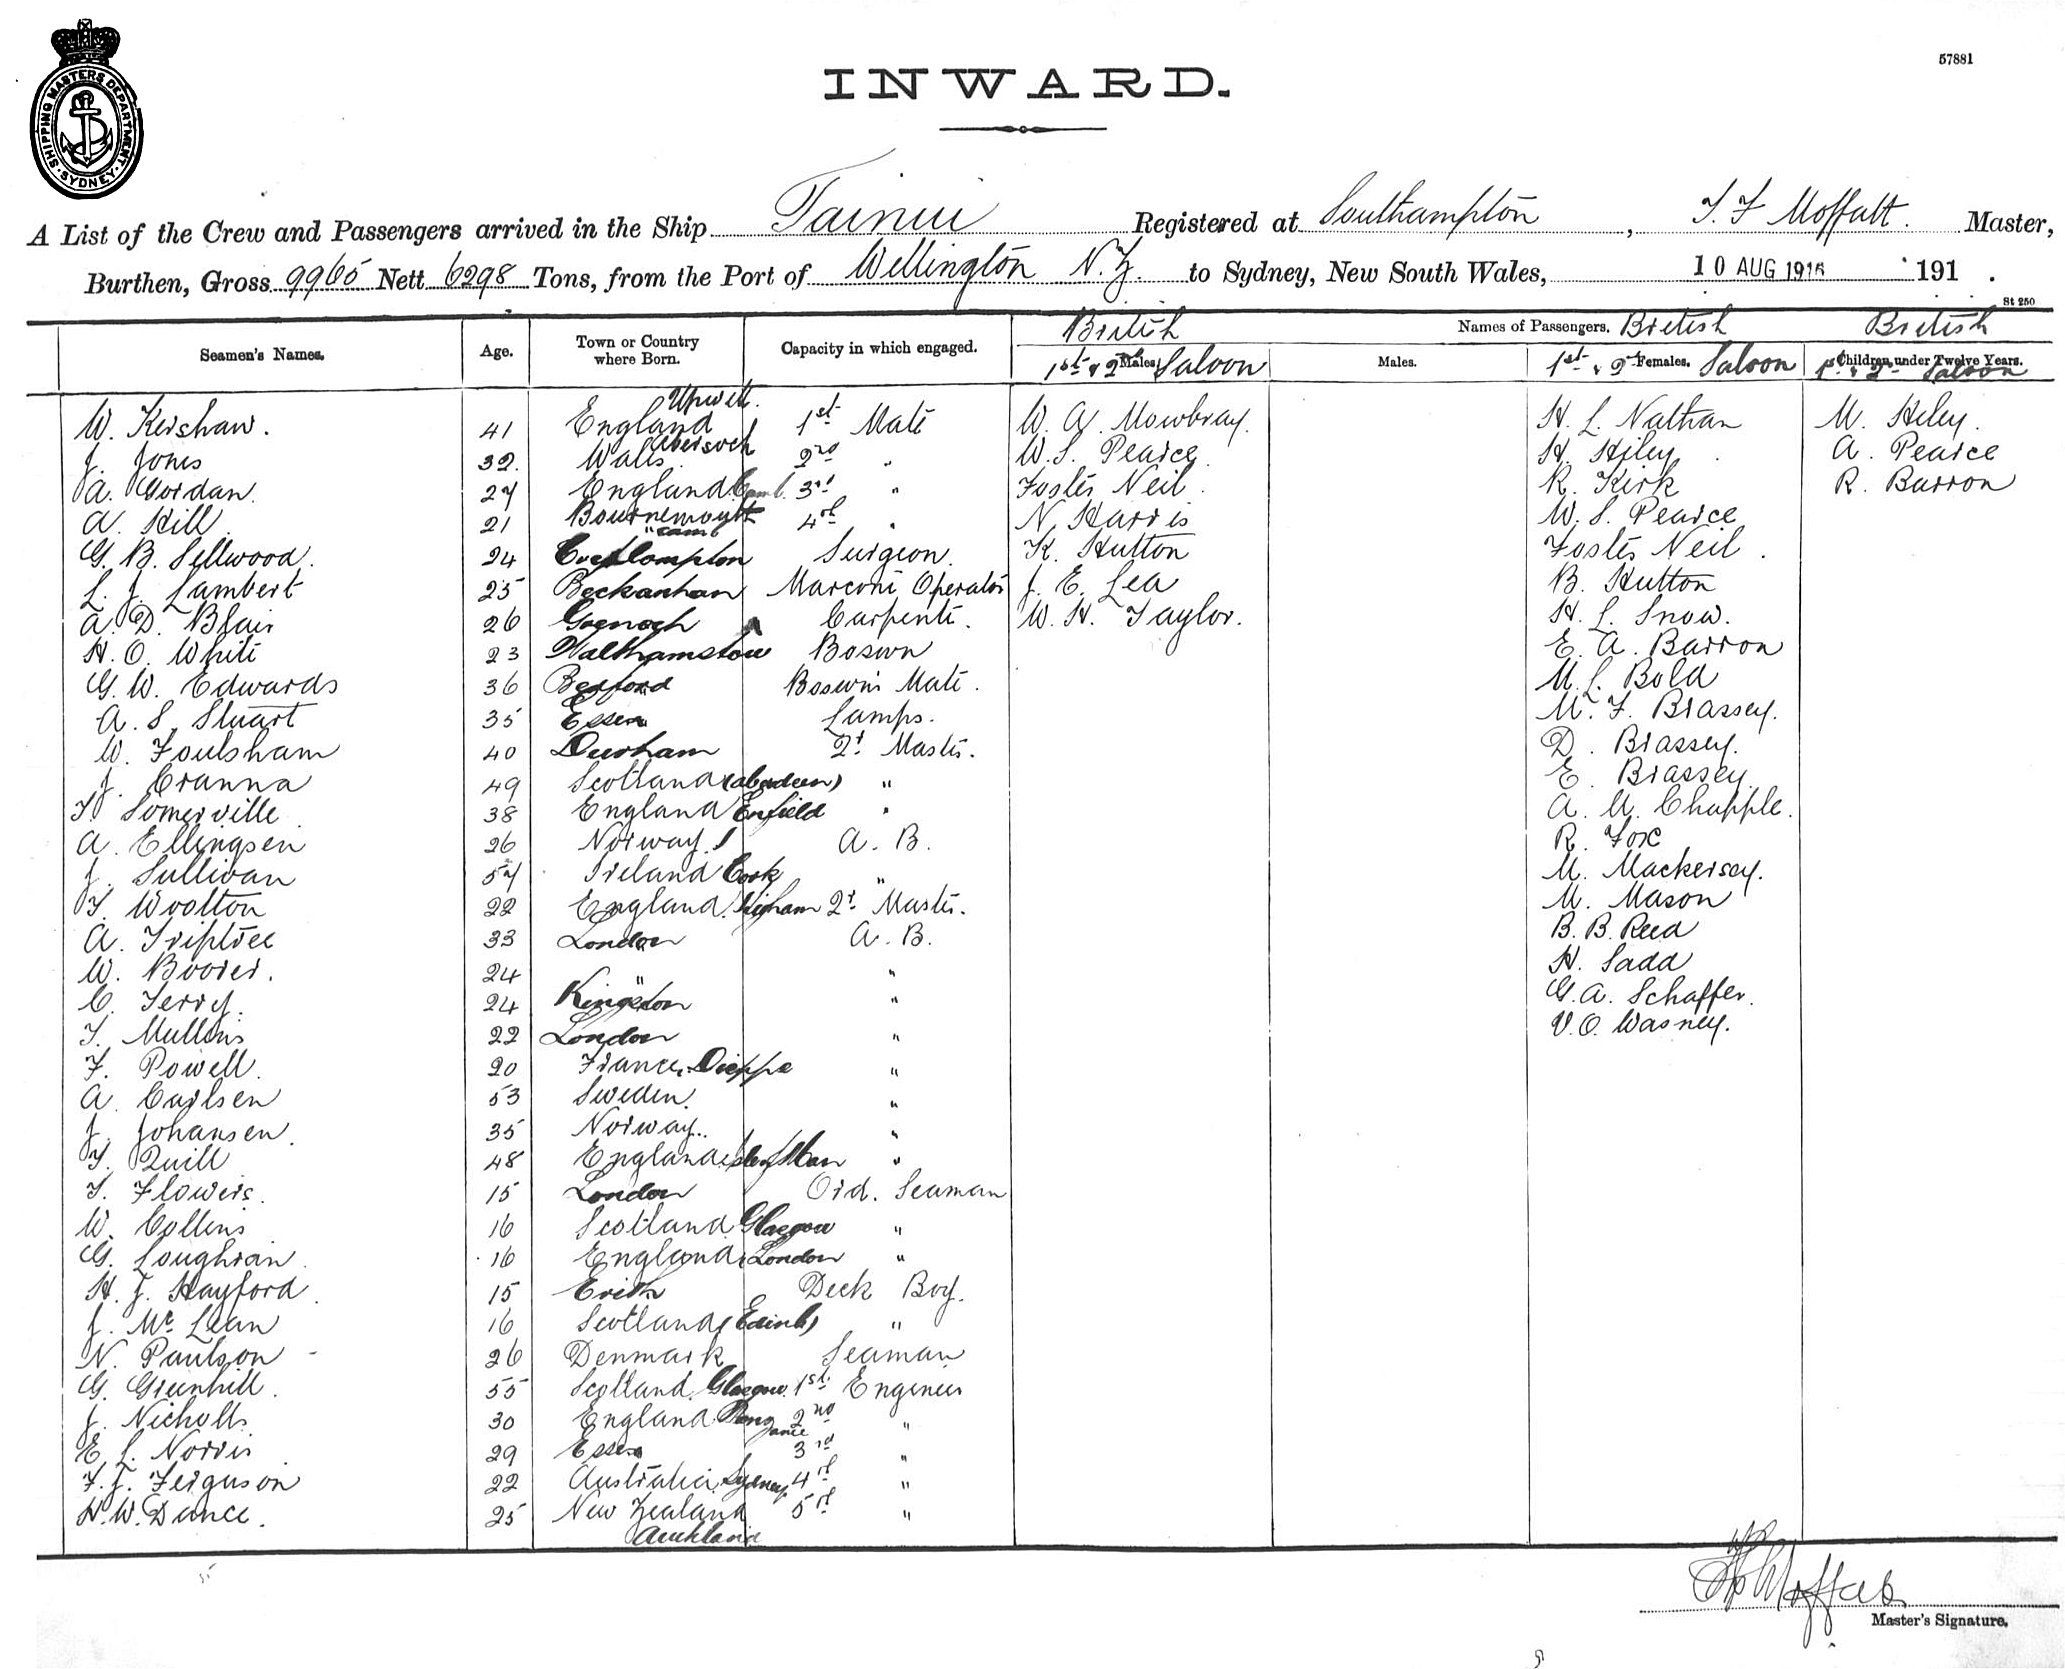 57881
INWARD.
SHIPPING MASTERS DEPARTMENT
SYDNEY
A List of the Crew and Passengers arrived in the Ship Tainui Registered at Southampton, T. F Moffatt. Master,
Burthen, Gross 9965 Nett 6298 Tons, from the Port of Wellington N.Z. to Sydney, New South Wales, 10 AUG 1916 191 .
St 250
Seamen's Names. Age. Town or Country where Born. Capacity in which engaged. Names of Passengers.
British British British
Males. Males. Females. Children under Twelve Years.
1st & 2nd Saloon 1st & 2nd Saloon 1st & 2nd Saloon
W. Kershaw. 41 England Upwell. 1st Mate W. A. Mowbray. H. L. Nathan M. Hiley.
J. Jones 32. Wales Abersoch 2nd " W. S. Pearce. H. Hiley A. Pearce
A. Gordan. 27 England Camb. 3rd " Foster Neil. R. Kirk R. Barron
A. Hill 21 Bournemouth 4th " N. Harris W. S. Pearce
G. B. Sellwood. 24 Surgeon. K. Hutton Foster Neil.
L. J. Lambert 25 Beckanham Marconi Operator J. E. Lea B. Hutton
A. D. Blair 26 Carpenter. W. H. Taylor. H. L. Snow.
H. O. White 23 Walthamstow Boswn E. A. Barron
G. W. Edwards 36 Bedford Boswn's Mate. M. L. Bold
A. S. Stuart 35 Essex Lamps. M. F. Brassey.
W. Foulsham 40 Durham 2r. Master. D. Brassey.
J. Cranna 49 Scotland (Aberdeen) " E. Brassey
T. Somerville 38 England Enfield " A. M. Chapple.
A. Ellingsen 26 Norway. A. B. R. Fox
J. Sullivan 57 Ireland Cork " M. Mackersey.
T. Wootton 22 England. Higham 2r. Master. M. Mason
A. Triptree 33 London A. B. B. B. Reed
W. Boorer. 24 " " H. Sadd
C. Terry. 24 Kingston " G. A. Schaffer.
T. Mullons 22 London " V. O. Wasney.
F. Powell. 20 France. Dieppe "
A. Carlsen 53 Sweden. "
J. Johansen. 35 Norway. "
T. Quill 48 England Isle of Man "
T. Flowers. 15 London Ord. Seaman
W. Collins 16 Scotland Glasgow "
G. Loughran. 16 England London "
H. J. Hayford. 15 Erith Deck Boy.
J. McLean 16 Scotland (Edinb) "
N. Paulson 26 Denmark Seaman
G. Greenhill. 55 Scotland. Glasgow. 1st. Engineer
J. Nicholls 30 England Penzance 2nd "
E. L. Norris 29 Essex 3rd "
F. J. Ferguson 22 Australia. Sydney 4th "
W. W. Dance. 25 New Zealand Auckland 5th "
Moffatt
Master's Signature.